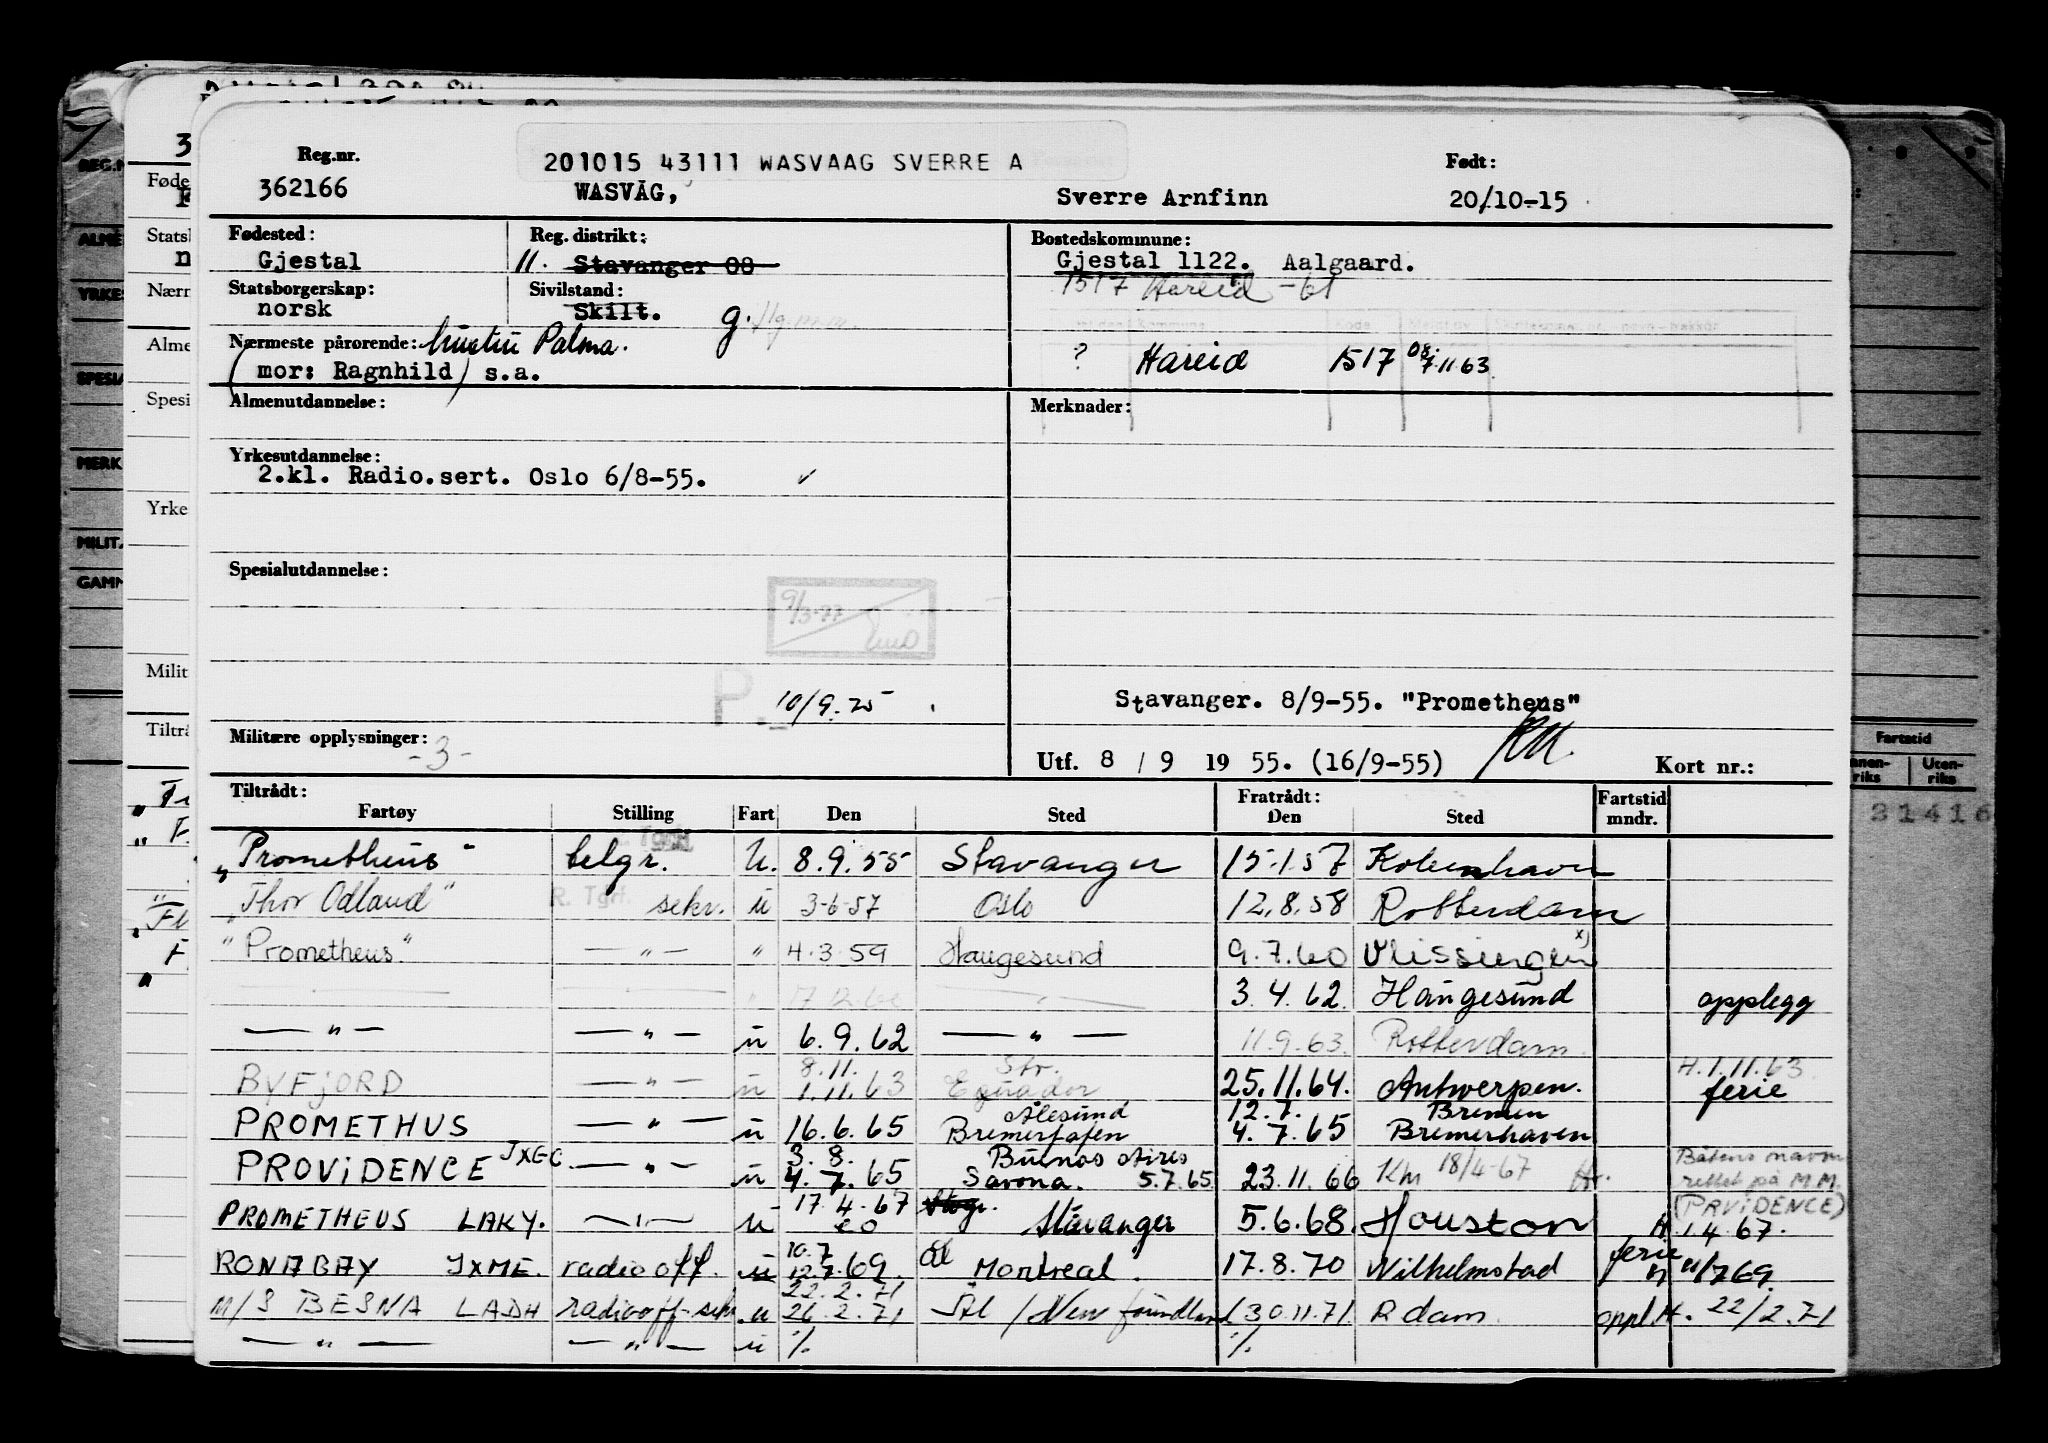 Reg.nr. 201015 43111 WASVAAG SVERRE A Født:
362166 WASVÅG, Sverre Arnfinn 20/10-15
Fødested: Reg. distrikt: Bostedskommune:
Gjestal 11. Stavanger 08 Gjestal 1122. Aalgaard.
Statsborgerskap: Sivilstand: 1517 Hareid -61
norsk Skilt. g.
Nærmeste pårørende: hustru Palma. ? Hareid 1517 08 7.11.63
(mor: Ragnhild) s.a.
Almenutdannelse: Merknader:
Yrkesutdannelse:
2.kl. Radio.sert. Oslo 6/8-55.
Spesialutdannelse:
9/3-77
P. 10/9.75
Stavanger. 8/9-55. "Prometheus"
Militære opplysninger: -3-
Utf. 8 / 9 19 55. (16/9-55) Kort nr.:
Tiltrådt: Fratrådt: Fartstid
Fartøy Stilling Fart Den Sted Den Sted mndr.
"Prometheus" telgr. U. 8.9.55 Stavanger 15.1.57 Kobenhavn
"Thor Odland" R. Tgr. sekr. u 3-6-57 Oslo 12.8.58 Rotterdam
"Prometheus" — " — " 4.3.59 Haugesund 9.7.60 Vlissingen x)
— — " 17.12.60 — " — 3.4.62. Haugesund opplegg
— " — — " — u 6.9.62 — " — 11.9.63. Rotterdam
BYFJORD — " — u 8.11. 1.11.63 Str. Equador 25.11.64. Antwerpen. H.1.11.63 ferie
PROMETHUS — " — u 16.6.65 Ålesund Bremerhafen 12.7. 4.7.65 Bremen Bremerhaven
PROVIDENCE JXGC — " — u 3.8. 4.7.65 Buenos Aires Savona. 5.7.65 23.11.66 Khn 18/4-67 Båtens navn rettet på M.M. (PRVIDENCE)
PROMETHEUS LAKY. — " — u 17.4.67 20 Stvgr. Stavanger 5.6.68. Houston H 1.4.67.
RONABAY JXME. radio off. u 10.7 12.7.69. Øl Montreal. 17.8.70 Wilhelmstad ferie 1/7 69.
M/S BESNA LADH radiooff-sekr u 22.2.71 26.2.71 Stl / New foundland 30.11.71. R dam. oppl. H. 22/2.71
— " — — " — u % %
REG.N
ALME
YRKES
SPESIA
MERK
MILIT.
GAMM
3
Føde
Statsb
n
Nærn
Alme
Spesi
Yrke
Milit
Tiltrå
Fartstid
Innen-
riks
Uten-
riks
31416